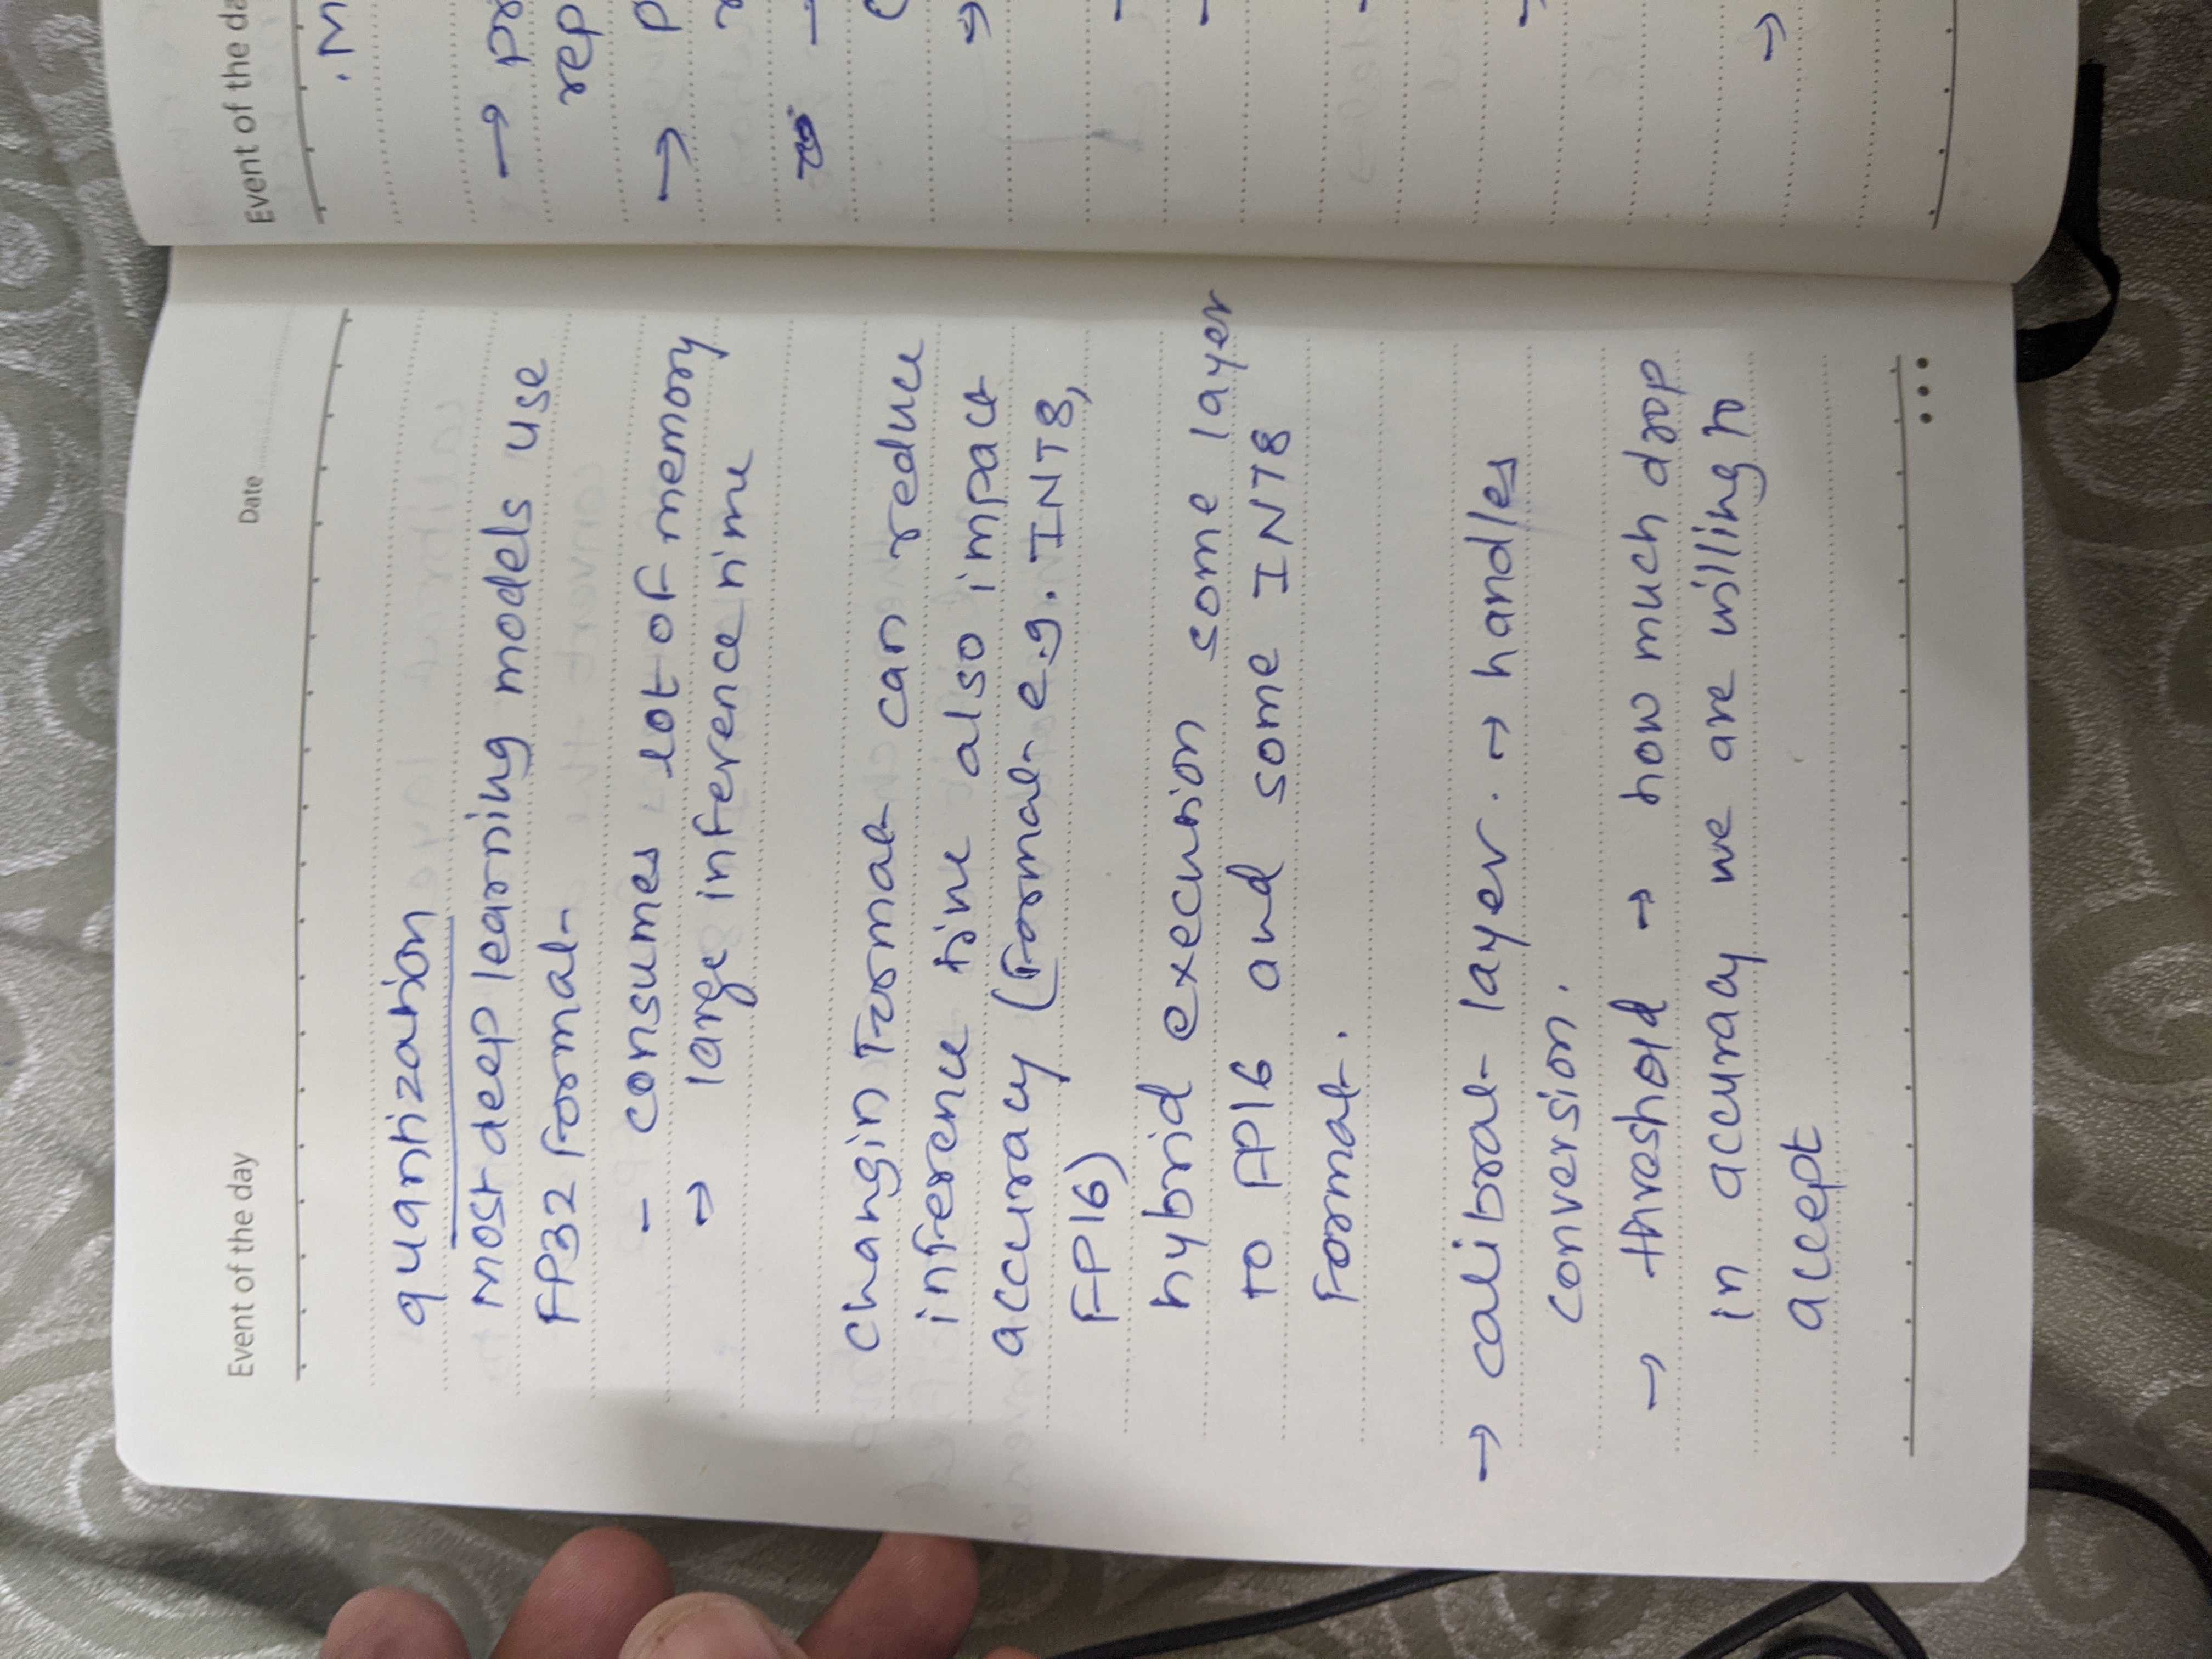 Event of the day
Date
quantization
most deep learning models use
FP32 format
- consumes lot of memory
→ large inference time
changin format can reduce
inference time also impact
accuracy (format e.g. INT8,
FP16)
hybrid execution some layer
to FP16 and some INT8
format.
→ calibrat layer. → handles
conversion.
→ threshold → how much drop
in accuracy we are willing to
accept
Event of the da
→
rep
→
→
→
→